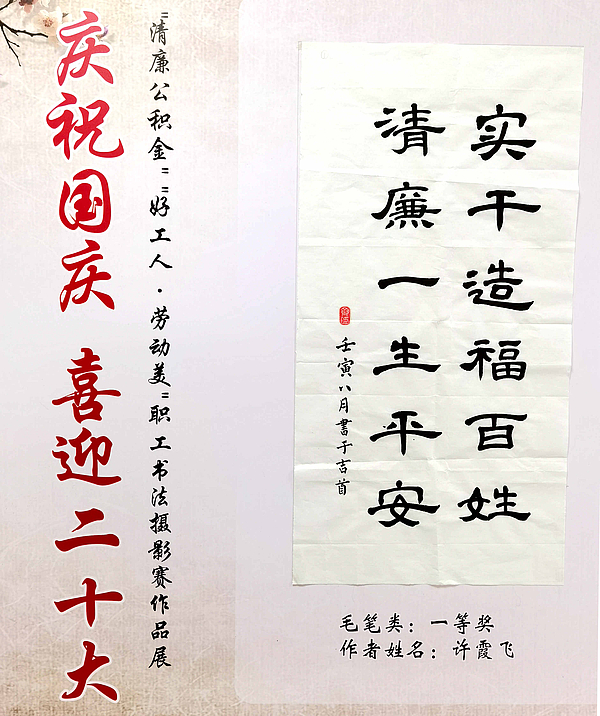 庆祝国庆 喜迎二十大
"清廉公积金""好工人·劳动美"职工书法摄影赛作品展
实干造福百姓
清廉一生平安
壬寅八月書于吉首
毛笔类：一等奖
作者姓名：许霞飞